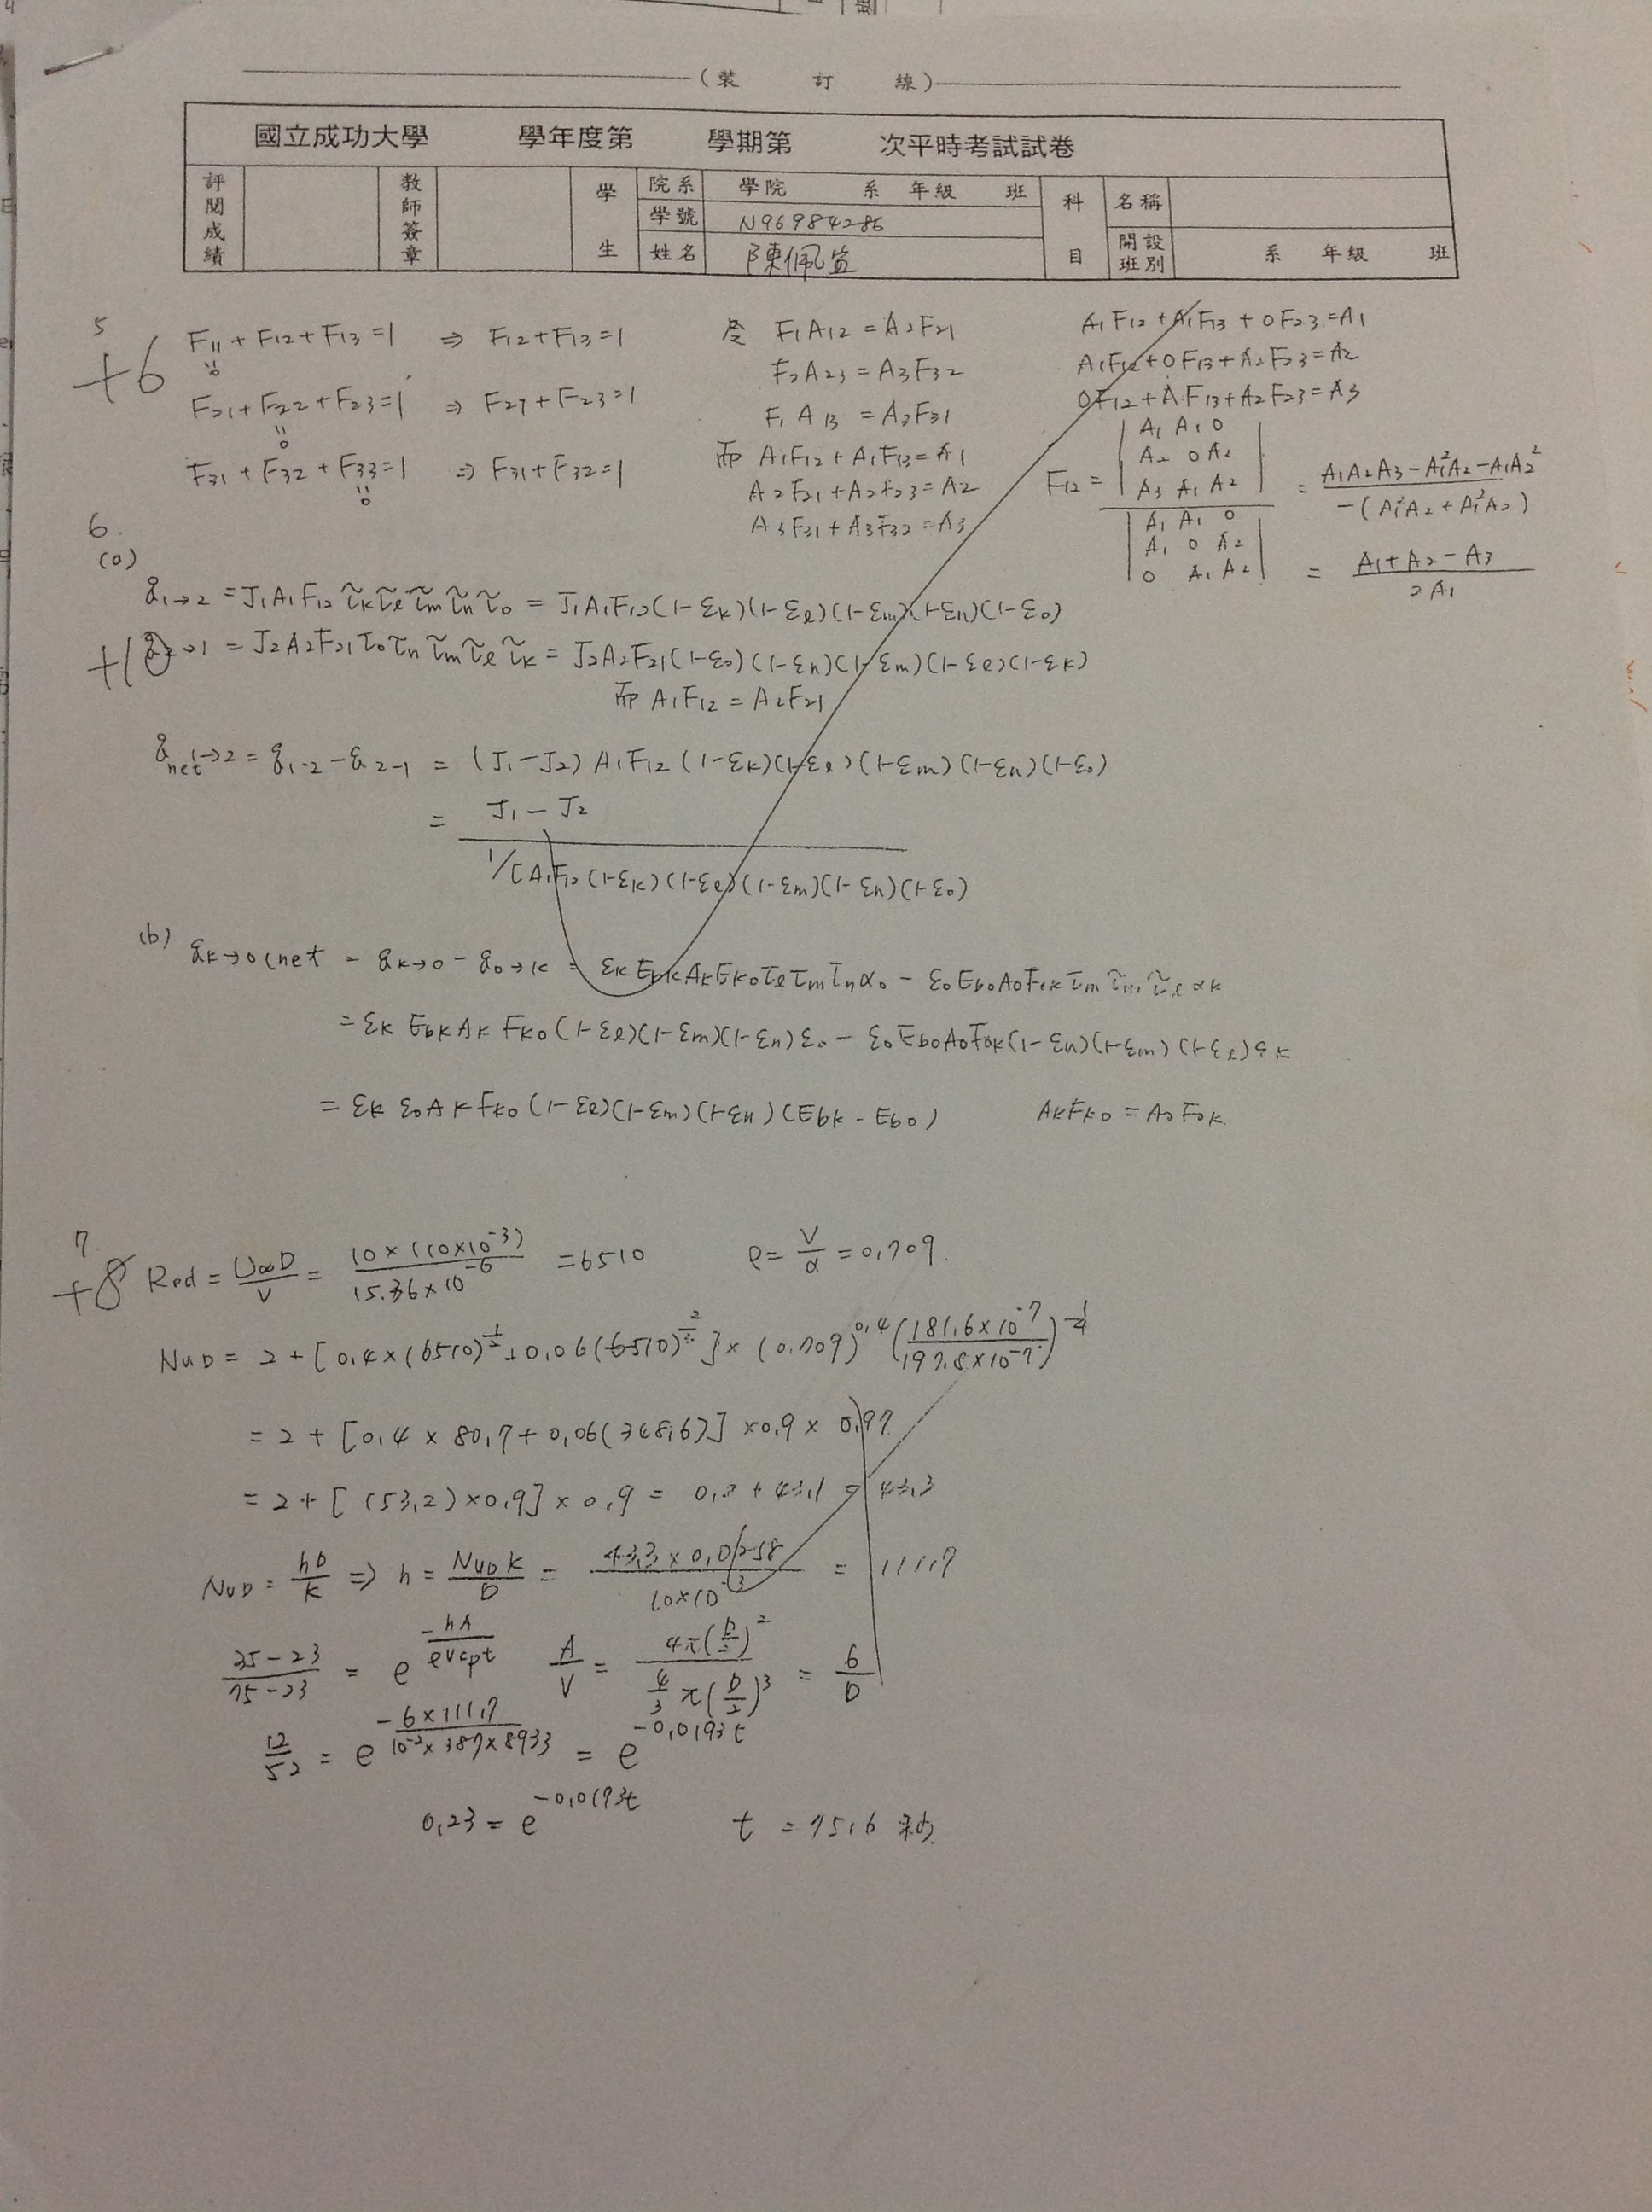 (裝 訂 線)
國立成功大學 學年度第 學期第 次平時考試試卷
評閱成績 教師簽章 學生 院系 學院 系 年級 班 科目 名稱
學號 N96984286
姓名 陳佩 開設班別 系 年級 班
5
+6
F11 + F12 + F13 = 1 ⇒ F12 + F13 = 1
0
F21 + F22 + F23 = 1 ⇒ F21 + F23 = 1
0
F31 + F32 + F33 = 1 ⇒ F31 + F32 = 1
0
F1A12 = A2F21
F2A23 = A3F32
F1A13 = A2F31
而 A1F12 + A1F13 = A1
A2F21 + A2F23 = A2
A3F31 + A3F32 = A3
A1F12 + A1F13 + 0F23 = A1
A1F12 + 0F13 + A2F23 = A2
0F12 + A1F13 + A2F23 = A3
F12 = |A1 A1 0; A2 0 A2; A3 A1 A2| / |A1 A1 0; A1 0 A2; 0 A1 A2| = (A1A2A3 − A1²A2 − A1A2²) / −(A1²A2 + A1²A2)
= (A1 + A2 − A3) / 2A1
6.
(a)
+10
q1→2 = J1A1F12 τk τl τm τn τo = J1A1F12(1−εk)(1−εl)(1−εm)(1−εn)(1−εo)
q2→1 = J2A2F21 τo τn τm τl τk = J2A2F21(1−εo)(1−εn)(1−εm)(1−εl)(1−εk)
而 A1F12 = A2F21
qnet1→2 = q1-2 − q2-1 = (J1−J2) A1F12 (1−εk)(1−εl)(1−εm)(1−εn)(1−εo)
= (J1 − J2) / 1/[A1F12(1−εk)(1−εl)(1−εm)(1−εn)(1−εo)
(b) qk→o,net = qk→o − qo→k = εk Ebk Ak Fko τl τm τn αo − εo Ebo Ao Fok τm τm τl αk
= εk Ebk Ak Fko (1−εl)(1−εm)(1−εn)εo − εo Ebo Ao Fok(1−εn)(1−εm)(1−εl)εk
= εk εo Ak Fko (1−εl)(1−εm)(1−εn)(Ebk − Ebo) AkFko = AoFok.
7.
+8
Red = U∞D/ν = 10×(10×10⁻³) / 15.36×10⁻⁶ = 6510 ρ = ν/α = 0.709.
NuD = 2 + [0.4×(6510)^½ + 0.06(6510)^⅔] × (0.709)^0.4 (181.6×10⁻⁷ / 197.8×10⁻⁷)^¼
= 2 + [0.4 × 80.7 + 0.06(348.6)] × 0.9 × 0.97
= 2 + [(53.2)×0.9] × 0.9 = 0.2 + 43.1 = 43.3
NuD = hD/k ⇒ h = NuD k/D = 43.3 × 0.0258 / 10×10⁻³ = 111.7
(35−23)/(75−23) = e^(−hA/ρVcp t) A/V = 4π(D/2)² / (4/3)π(D/2)³ = 6/D
12/52 = e^(−6×111.7 / 10⁻²×387×8933) = e^(−0.0193t)
0.23 = e^(−0.0193t) t = 75.6 秒.